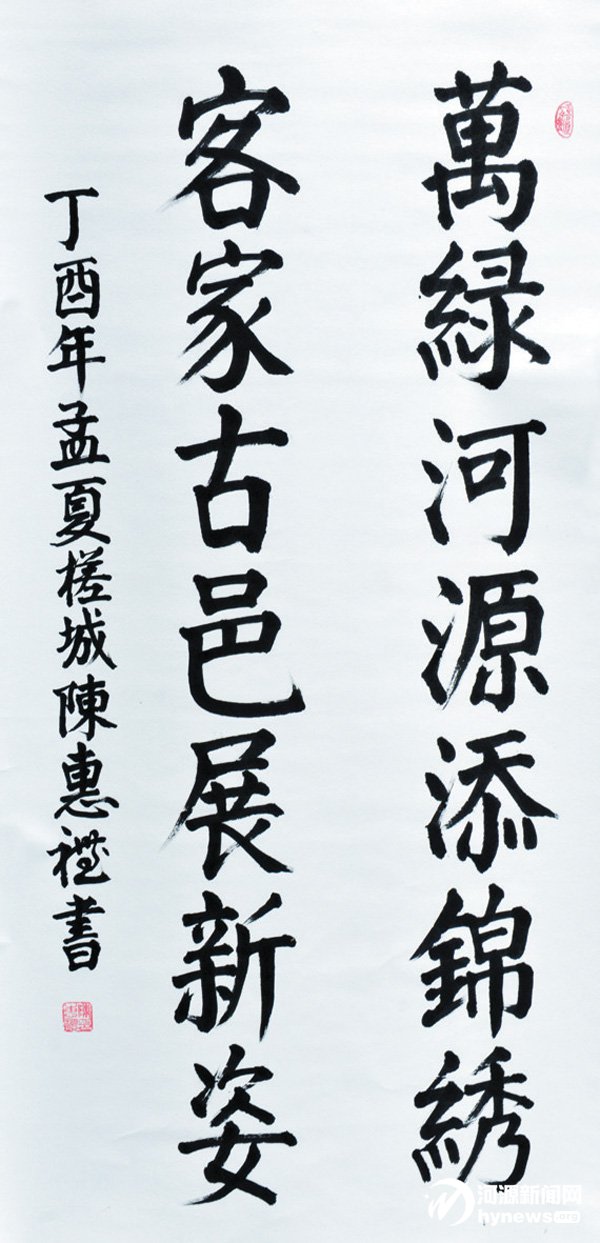 萬緑河源添錦綉
客家古邑展新姿
丁酉年孟夏槎城陳惠書
河源新闻网
hynews.org